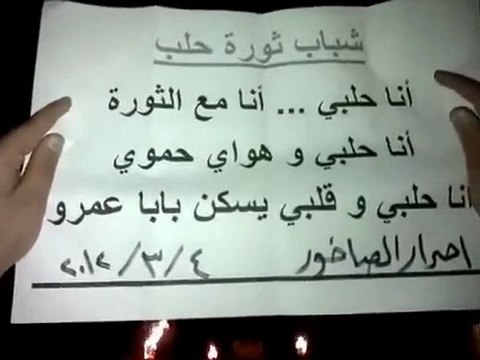 شباب ثورة حلب
أنا حلبي ... أنا مع الثورة
أنا حلبي و هواي حموي
أنا حلبي و قلبي يسكن بابا عمرو
احرار الصاخور ٢٠١٢/٣/٤